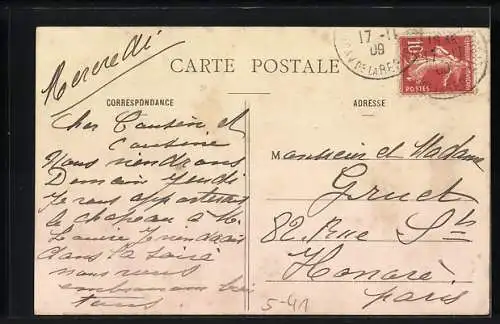 Mercredi
CARTE POSTALE
CORRESPONDANCE
ADRESSE
17-11
09
10
POSTES
Cher Cousin et
Cousine
Nous viendrons
Demain jeudi
Je vous apporterai
le chapeau à M.
Louise je viendrais
dans la soirée
nous vous
embrassons bien
tous
Monsieur et Madame
Gruet
82 Rue St
Honoré
Paris
5-41